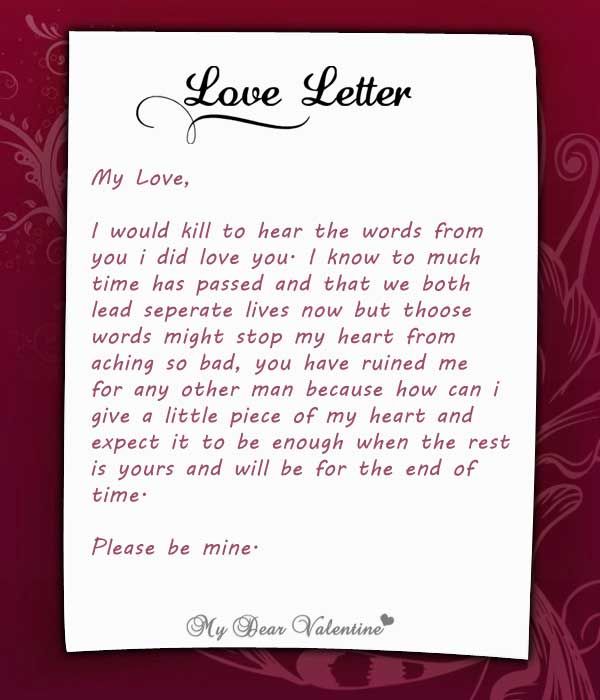 Love Letter
My Love,
I would kill to hear the words from
you i did love you. I know to much
time has passed and that we both
lead seperate lives now but thoose
words might stop my heart from
aching so bad, you have ruined me
for any other man because how can i
give a little piece of my heart and
expect it to be enough when the rest
is yours and will be for the end of
time.
Please be mine.
My Dear Valentine